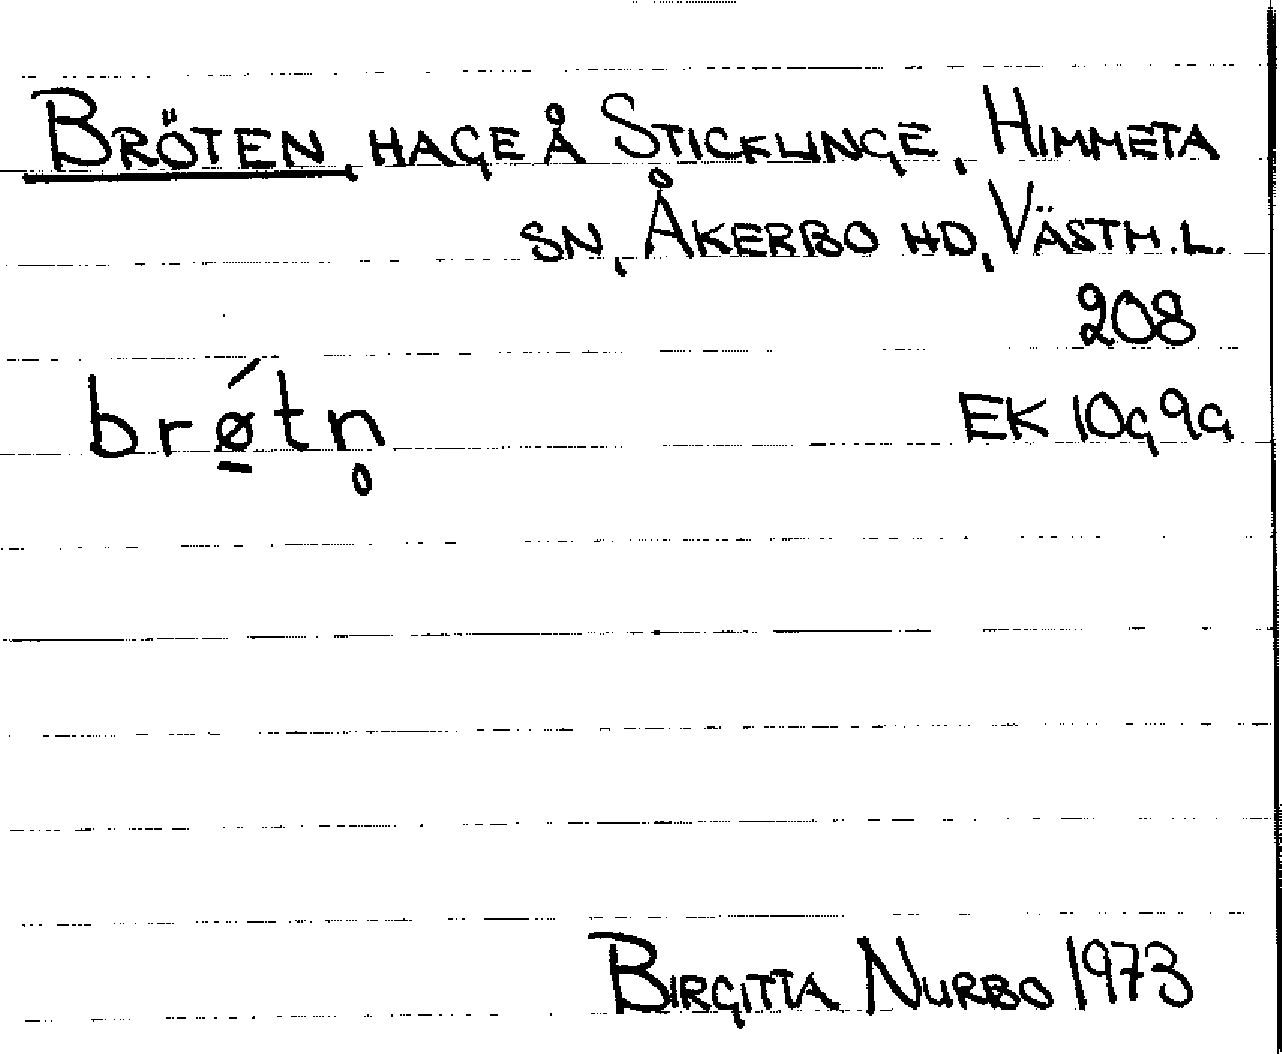 BRÖTEN, HAGE Å STICKLINGE, HIMMETA
SN, ÅKERBO HD, VÄSTM.L.
208
brǿ̲tn̥ EK 10g 9g
BIRGITTA NURBO 1973